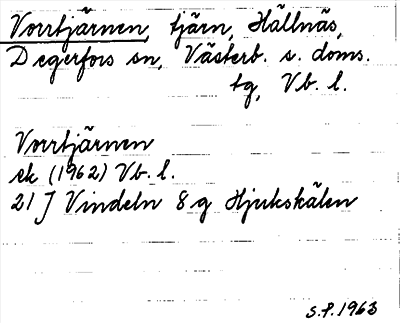 Vorrtjärnen, tjärn, Hällnäs,
Degerfors sn, Västerb. s. doms.
tg, Vb. l.
Vorrtjärnen
ek (1962) Vb. l.
21 J Vindeln 8 g Hjukskälen
S.P. 1963